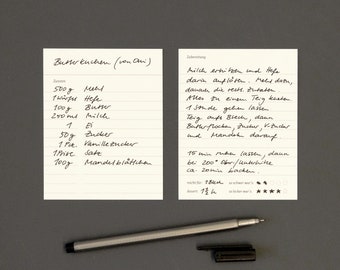 Butterkuchen (von Omi)
Zutaten
500g Mehl
1 Würfel Hefe
100g Butter
200ml Milch
1 Ei
50g Zucker
1 Pck Vanillezucker
1 Prise Salz
100g Mandelblättchen
Zubereitung
Milch erhitzen und Hefe
darin auflösen. Mehl dazu,
danach die restl. Zutaten
Alles zu einem Teig kneten
1 Stunde gehen lassen
Teig aufs Blech, dann
Butterflocken, Zucker, V-Zucker
und Mandeln darauf.
15 min ruhen lassen, dann
bei 200° Ober/Unterhitze
ca. 20min backen.
reicht für: 1 Blech
dauert: 1½ h